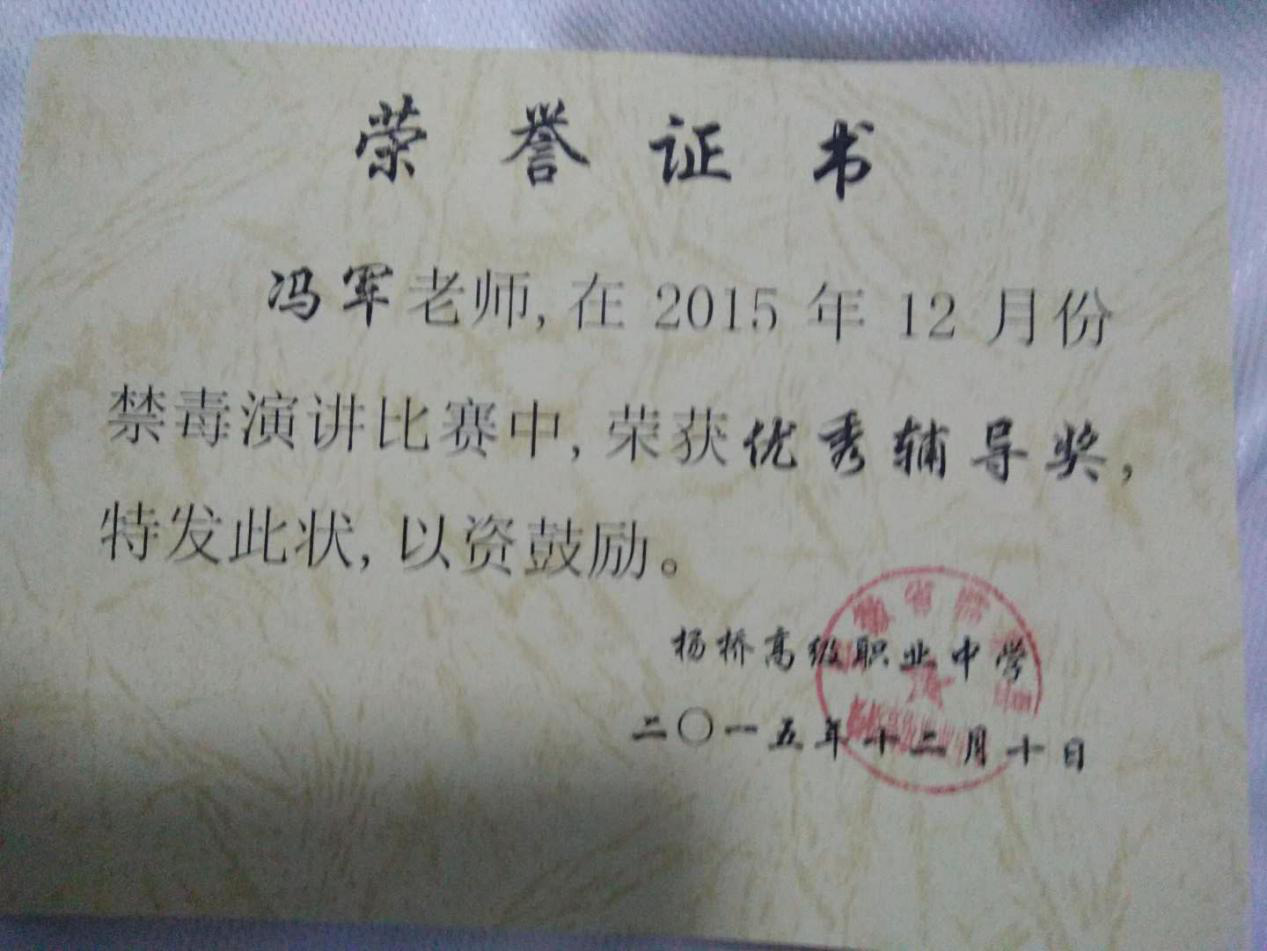 荣誉证书
冯军老师,在 2015 年 12 月份
禁毒演讲比赛中,荣获优秀辅导奖,
特发此状,以资鼓励。
杨桥高级职业中学
二〇一五年十二月十日